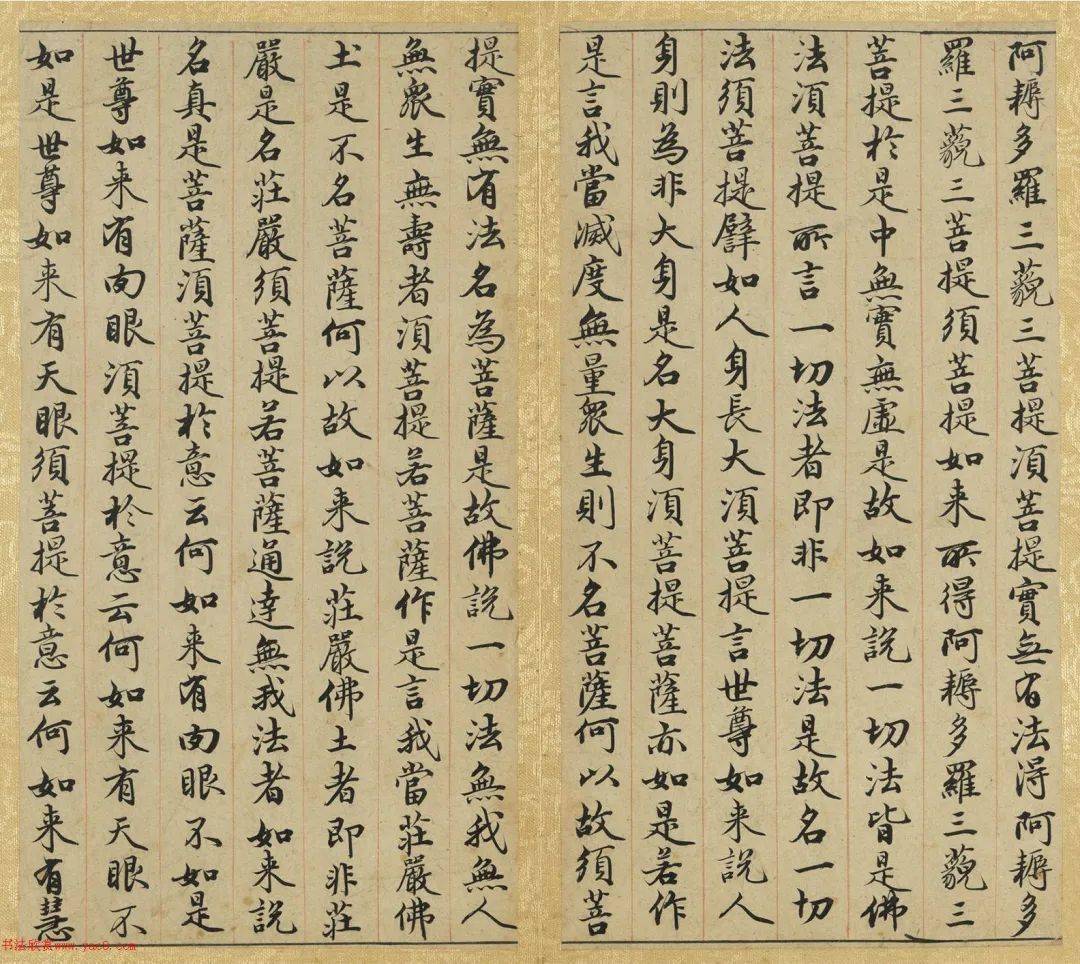 阿耨多羅三藐三菩提須菩提實無有法得阿耨多
羅三藐三菩提須菩提如来所得阿耨多羅三藐三
菩提於是中無實無虛是故如来說一切法皆是佛
法須菩提所言一切法者即非一切法是故名一切
法須菩提譬如人身長大須菩提言世尊如来說人
身則為非大身是名大身須菩提菩薩亦如是若作
是言我當滅度無量眾生則不名菩薩何以故須菩
提實無有法名為菩薩是故佛說一切法無我無人
無眾生無壽者須菩提若菩薩作是言我當莊嚴佛
土是不名菩薩何以故如来說莊嚴佛土者即非莊
嚴是名莊嚴須菩提若菩薩通達無我法者如来說
名真是菩薩須菩提於意云何如来有肉眼不如是
世尊如来有肉眼須菩提於意云何如来有天眼不
如是世尊如来有天眼須菩提於意云何如来有慧
书法欣赏www.yac8.com